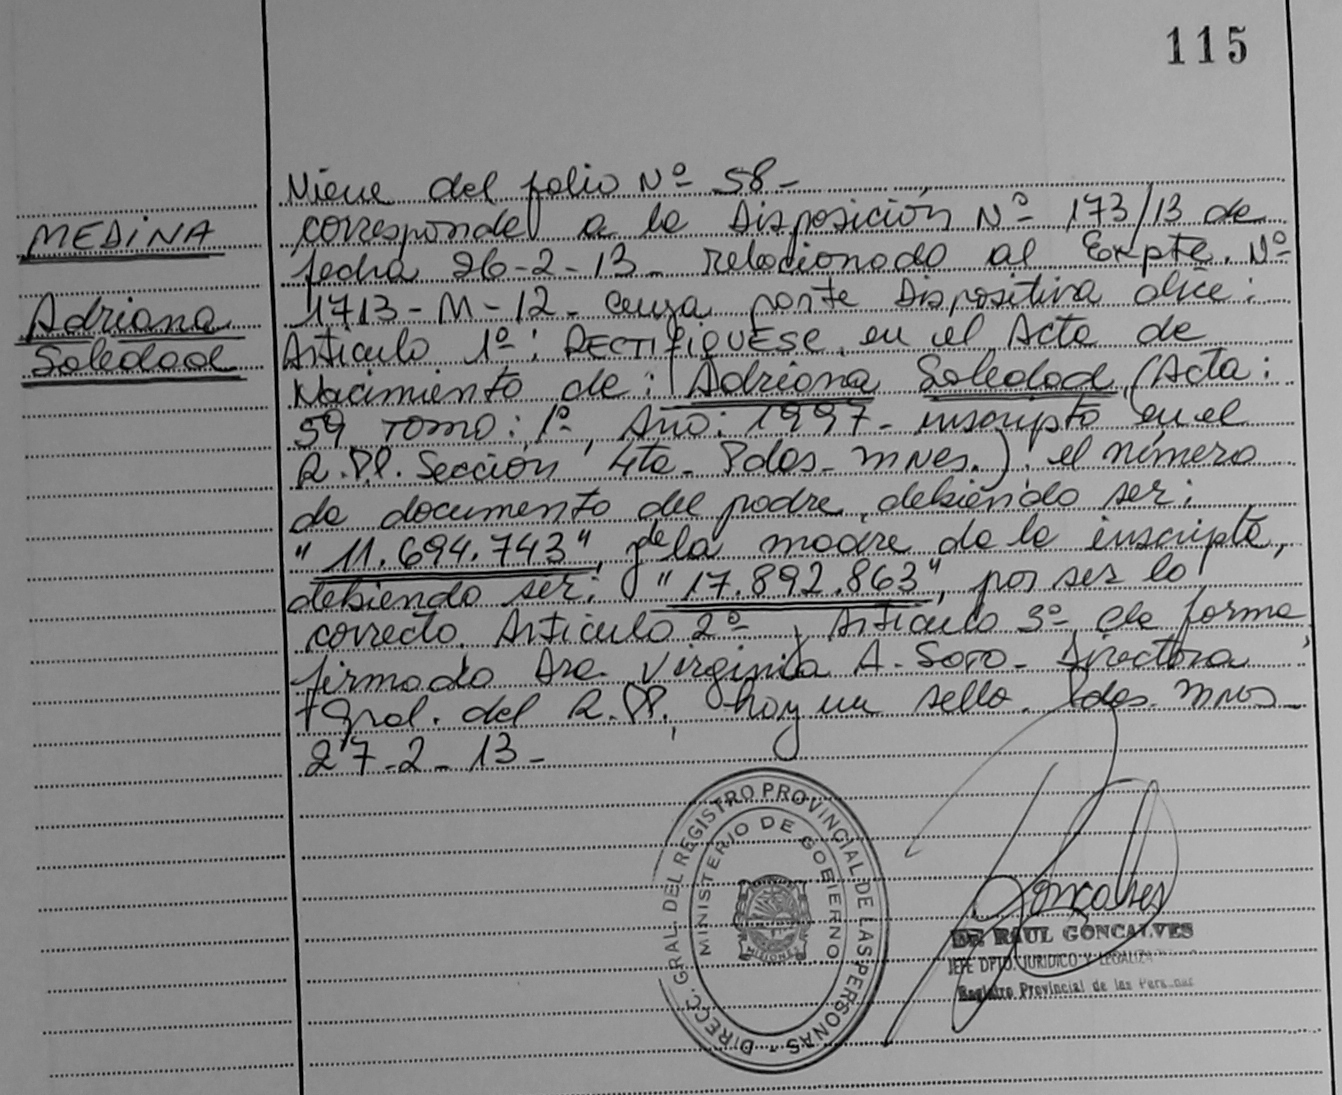 115
MEDINA
Adriana
Soledad
Viene del folio Nº 58-
corresponde a la Disposición Nº 173/13 de
fecha 26-2-13- relacionado al Expte. Nº
1713-M-12- cuya parte Dispositiva dice:
Articulo 1º: RECTIFIQUESE, en el Acta de
Nacimiento de: Adriana Soledad (Acta:
59, Tomo: 1º, Año: 1997- inscripto en el
R.PP. Sección 4ta- Pdas- MNES.). el número
de documento del padre, debiendo ser:
"11.694.743", y de la madre de la inscripta,
debiendo ser: "17.892.863", por ser lo
correcto. Articulo 2º y Articulo 3º de forma,
firmado Dra. Virginia A. Soto- Directora
Gral. del R.PP. hay un sello. Pdas. MNES-
27-2-13-
DIREC. GRAL. DEL REGISTRO PROVINCIAL DE LAS PERSONAS -
MINISTERIO DE GOBIERNO
MISIONES
Goncalves
DR RAUL GONCALVES
JEFE DPTO. JURIDICO Y
Registro Provincial de las Personas